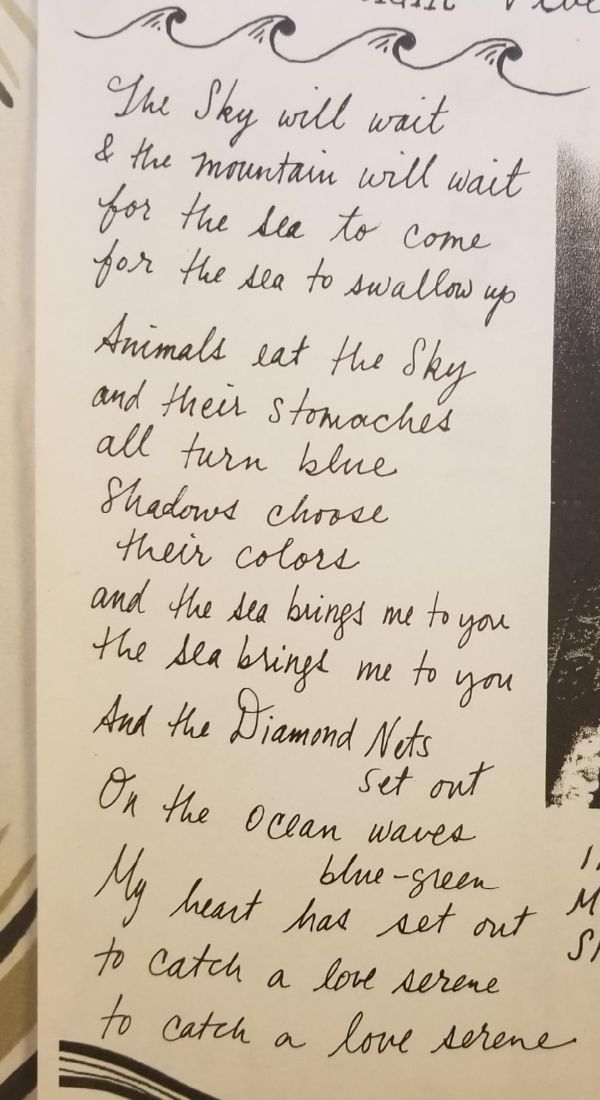 The Sky will wait
& the mountain will wait
for the sea to come
for the sea to swallow up
Animals eat the Sky
and their stomaches
all turn blue
Shadows choose
their colors
and the sea brings me to you
the sea brings me to you
And the Diamond Nets
set out
On the ocean waves
blue-green
My heart has set out
to catch a love serene
to catch a love serene